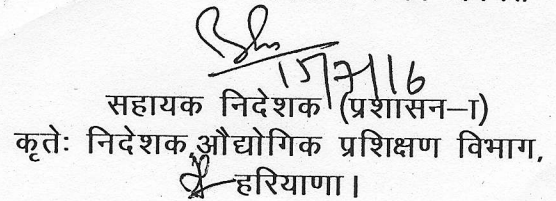 15/7/16
सहायक निदेशक (प्रशासन–I)
कृतेः निदेशक, औद्योगिक प्रशिक्षण विभाग,
हरियाणा।